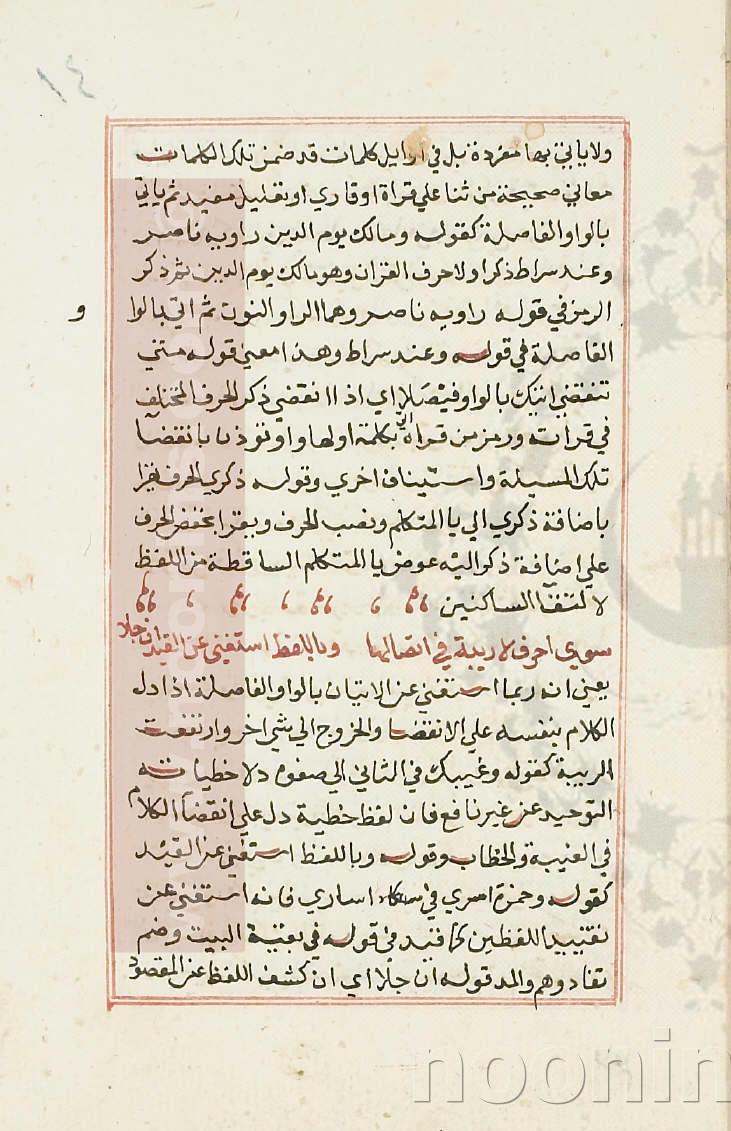 ١٤
ولا ياتي بها مفردة بل في اوايل كلمات قد ضمن تلك الكلمات
معاني صحيحة من ثنا علي قراة او قاري او تعليل مفيد ثم ياتي
بالواو الفاصلة كقوله ومالك يوم الدين راويه ناصر
وعند سراط ذكر اولا حرف القران وهو مالك يوم الدين ثم ذكر
الرمز في قوله راويه ناصر وهما الرا والنون ثم اتي بالوا
و
الفاصلة في قوله وعند سراط وهذا معني قوله متي
تنقضي اتيك بالواو فيصلا اي اذا انقضي ذكر الحرف المختلف
في قرات ورمز من قراه اتي بكلمة اولها واو تؤذن بانقضا
تلك المسيلة واستيناف اخري وقوله ذكري الحرف يقرا
باضافة ذكري الي يا المتكلم ونصب الحرف ويقرا بخفض الحرف
علي اضافة ذكر اليه عوض يا المتكلم الساقطة من اللفظ
لالتقا الساكنين
سوي احرف لا ريبة في اتصالها وباللفظ استغني عن القيد ان جلا
يعني انه ربما استغني عن الاتيان بالواو الفاصلة اذا دل
الكلام بنفسه علي الانقضا والخروج الي شي اخر وارتفعت
الريبة كقوله وغيبك في الثاني الي صفوه دلا خطياته
التوحيد عن غير نافع فان لفظ خطية دل علي انقضا الكلام
في الغيبة والخطاب وقوله وباللفظ استغني عن القيد
كقوله وحمزة اسري في اساري فانه استغني عن
تقييد اللفظين كما قيد في قوله في بقية البيت وضم
تفادوهم والمد قوله ان جلا اي ان كشف اللفظ عن المقصود
noonin